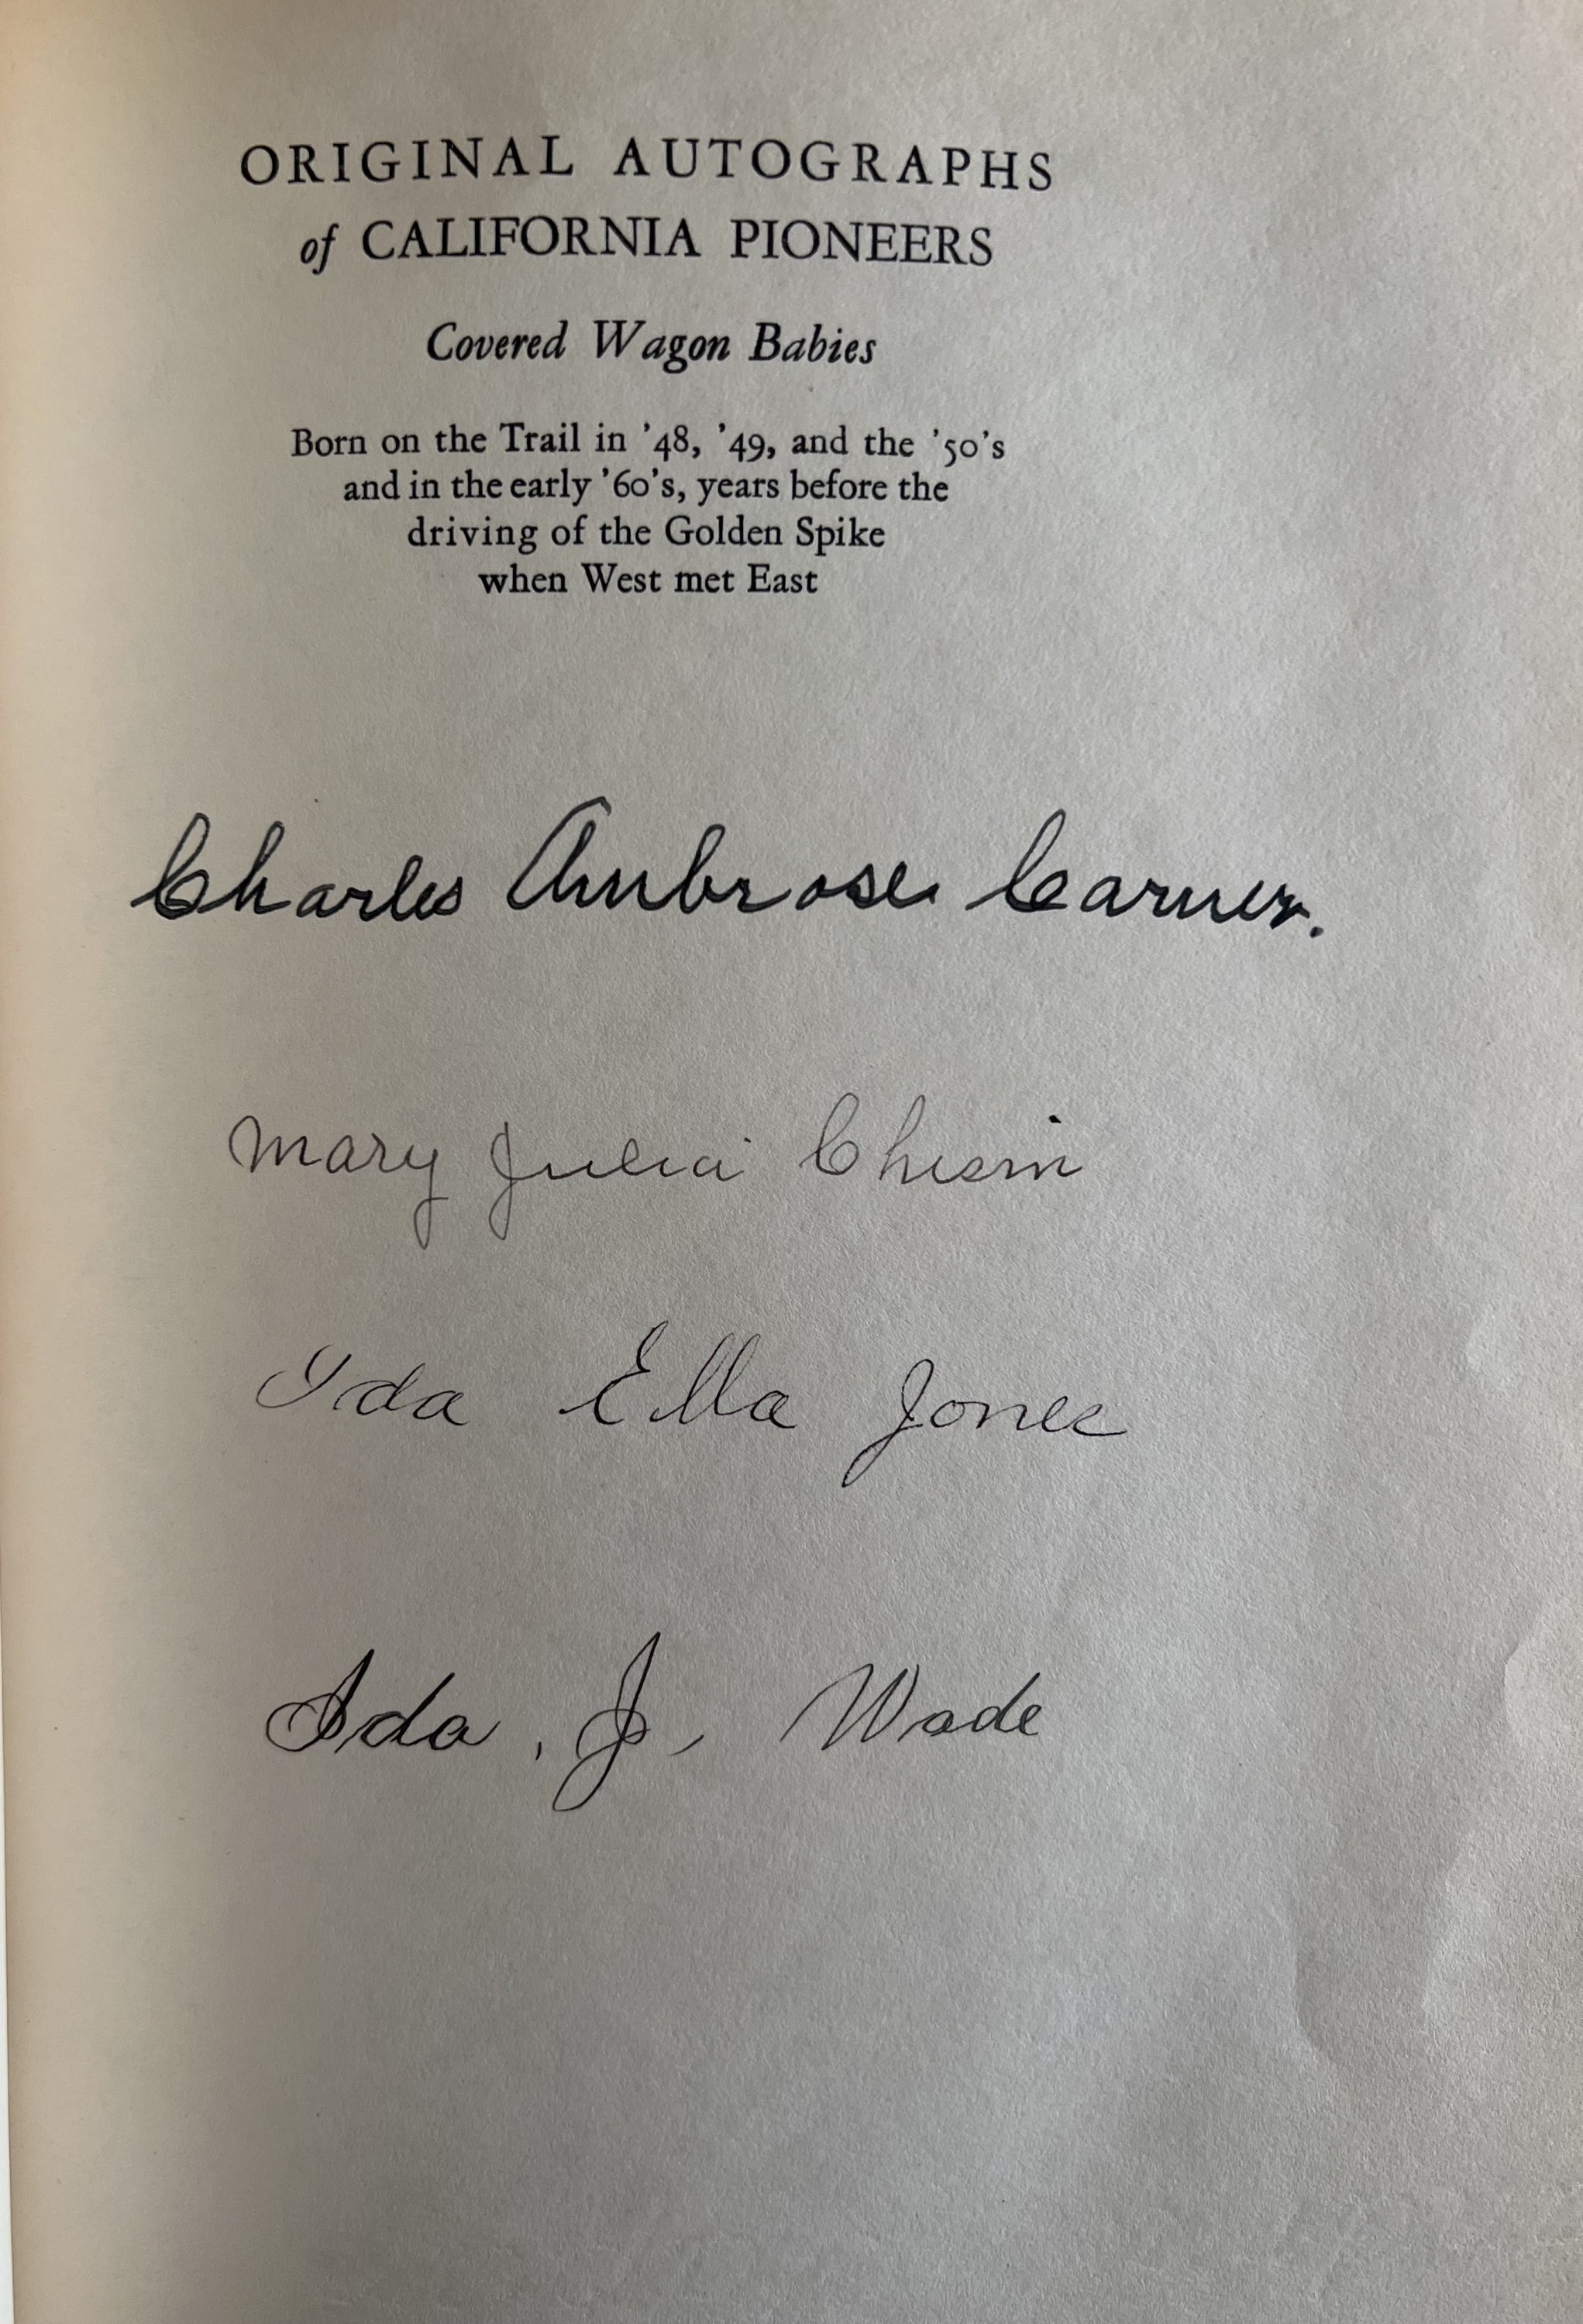 ORIGINAL AUTOGRAPHS
of CALIFORNIA PIONEERS
Covered Wagon Babies
Born on the Trail in '48, '49, and the '50's
and in the early '60's, years before the
driving of the Golden Spike
when West met East
Charles Ambrose Carner.
Mary Julia Chism
Ida Ella Jones
Ida, J, Wade